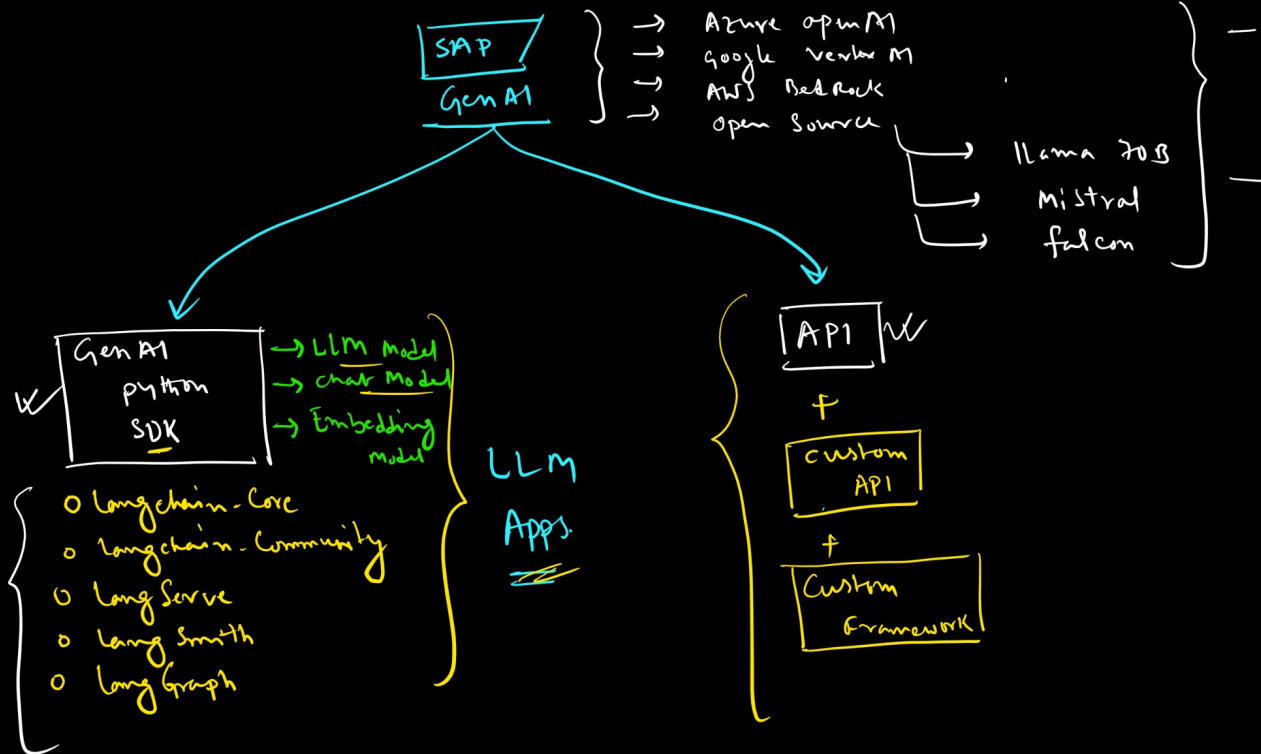 SAP
GenAI
Azure openAI
Google vertex AI
AWS BedRock
open source
llama 70B
Mistral
falcon
GenAI
python
SDK
LLM Model
chat Model
Embedding
Model
langchain-Core
langchain-Community
lang Serve
lang Smith
lang Graph
LLM
Apps.
API
+
custom
API
+
Custom
Framework